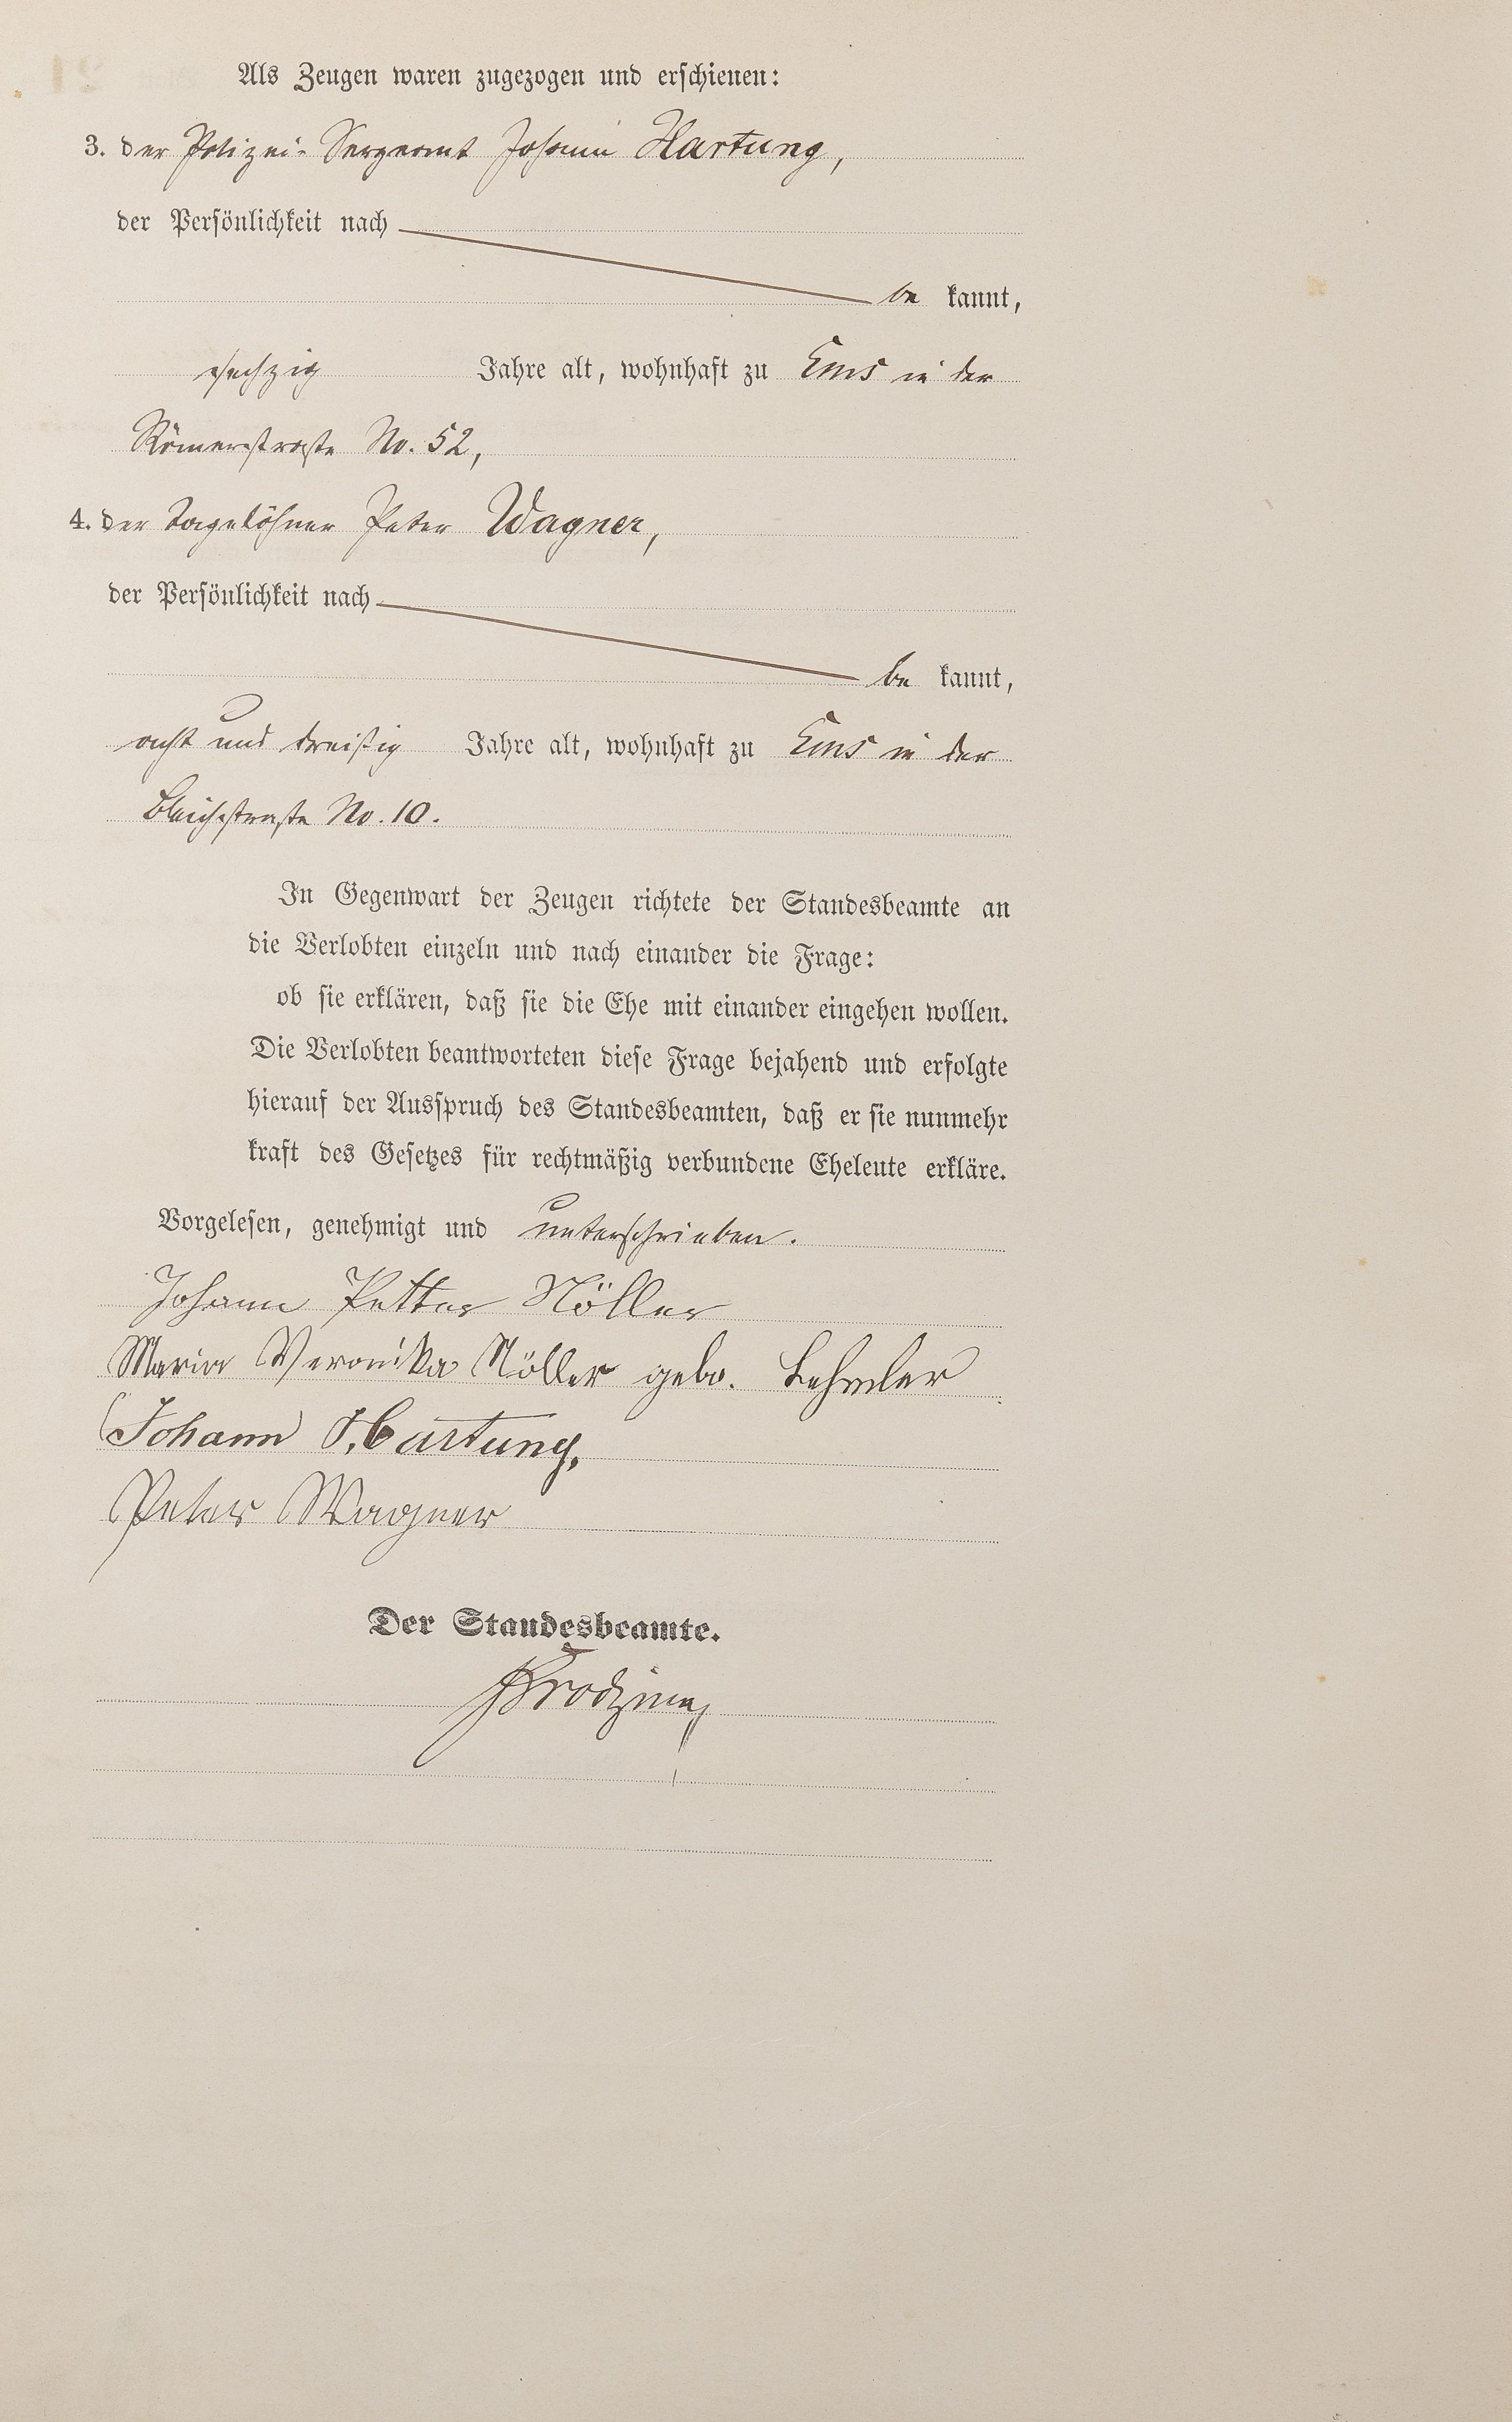 Als Zeugen waren zugezogen und erschienen:
3. der Polizei-Sergeant Johann Hartung,
der Persönlichkeit nach
be kannt,
sechzig Jahre alt, wohnhaft zu Ems in der
Römerstraße No. 52,
4. der Tagelöhner Peter Wagner,
der Persönlichkeit nach
be kannt,
acht und dreißig Jahre alt, wohnhaft zu Ems in der
Bleichstraße No. 10.
In Gegenwart der Zeugen richtete der Standesbeamte an
die Verlobten einzeln und nach einander die Frage:
ob sie erklären, daß sie die Ehe mit einander eingehen wollen.
Die Verlobten beantworteten diese Frage bejahend und erfolgte
hierauf der Ausspruch des Standesbeamten, daß er sie nunmehr
kraft des Gesetzes für rechtmäßig verbundene Eheleute erkläre.
Vorgelesen, genehmigt und unterschrieben.
Johann Petter Nöller
Maria Veronika Nöller gebo.
Johann Hartung.
Peter Wagner
Der Standesbeamte.